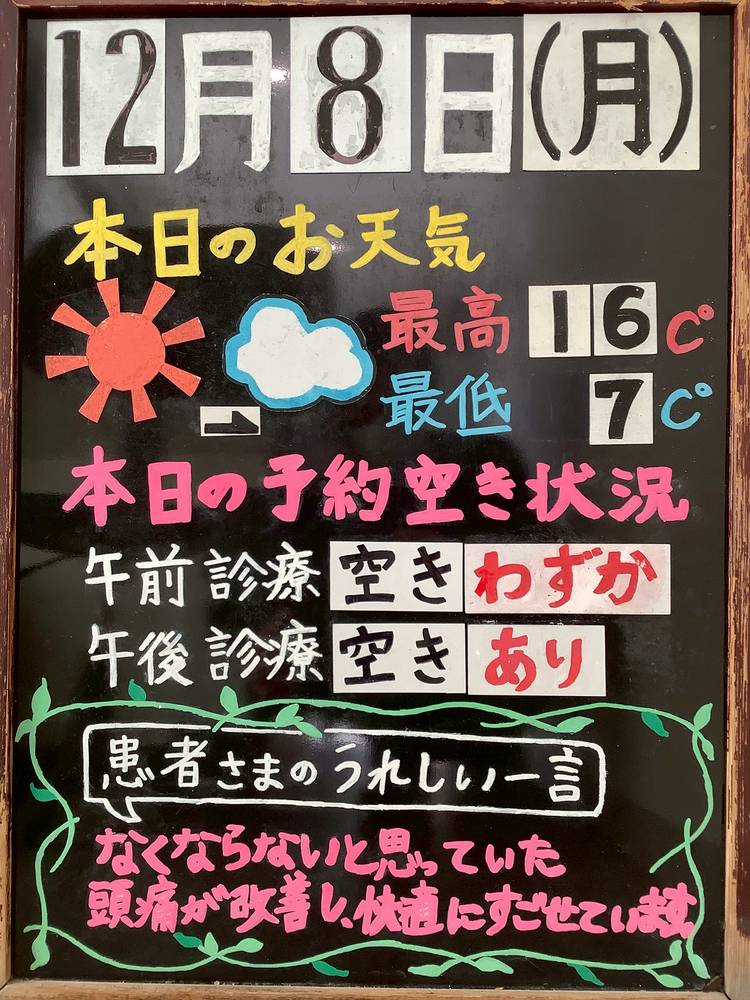 12月8日(月)
本日のお天気
最高 16℃
最低 7℃
本日の予約空き状況
午前診療 空きわずか
午後診療 空きあり
患者さまのうれしい一言
なくならないと思っていた
頭痛が改善し、快適にすごせています